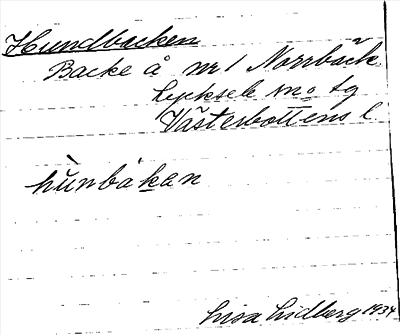 Hundbacken
Backe å nr 1 Norrbäck
Lycksele sn o tg
Västerbottens l
hùnbákan
Lisa Lidberg 1934